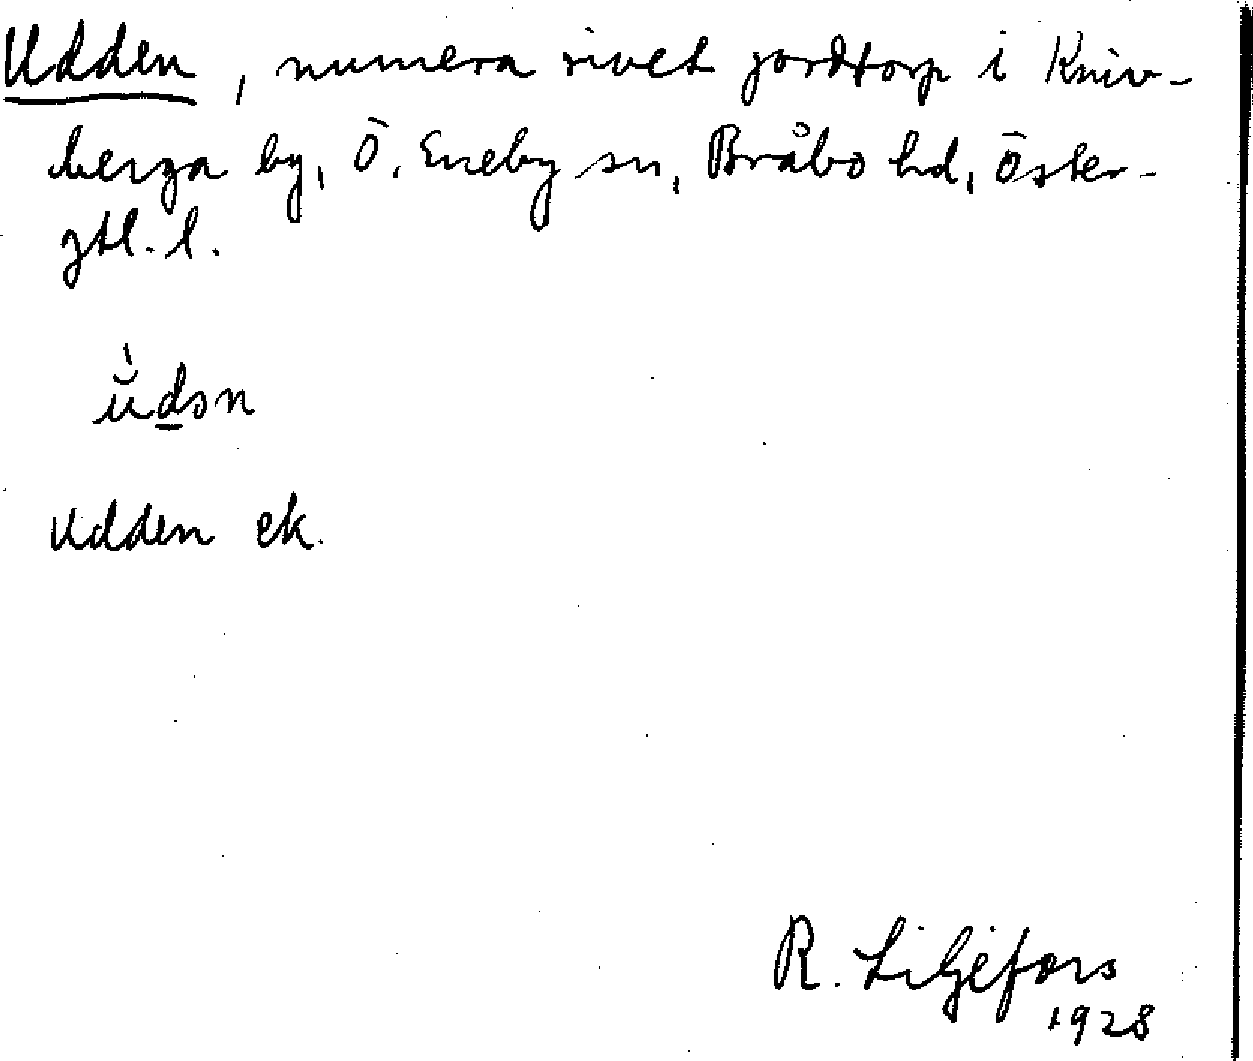 Udden, numera rivet jordtorp i Kniv-
berga by, Ö. Eneby sn, Bråbo hd, Öster-
gtl. l.
Udden ek.
R. Liljefors
1928